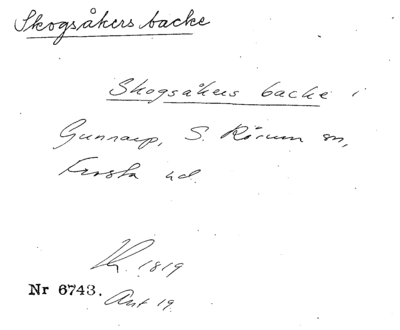 Skogsåkers backe
Skogsåkers backe i
Gunnarp, S. Rörum sn,
Frosta hd.
1819
Nr 6743.
Ant 19